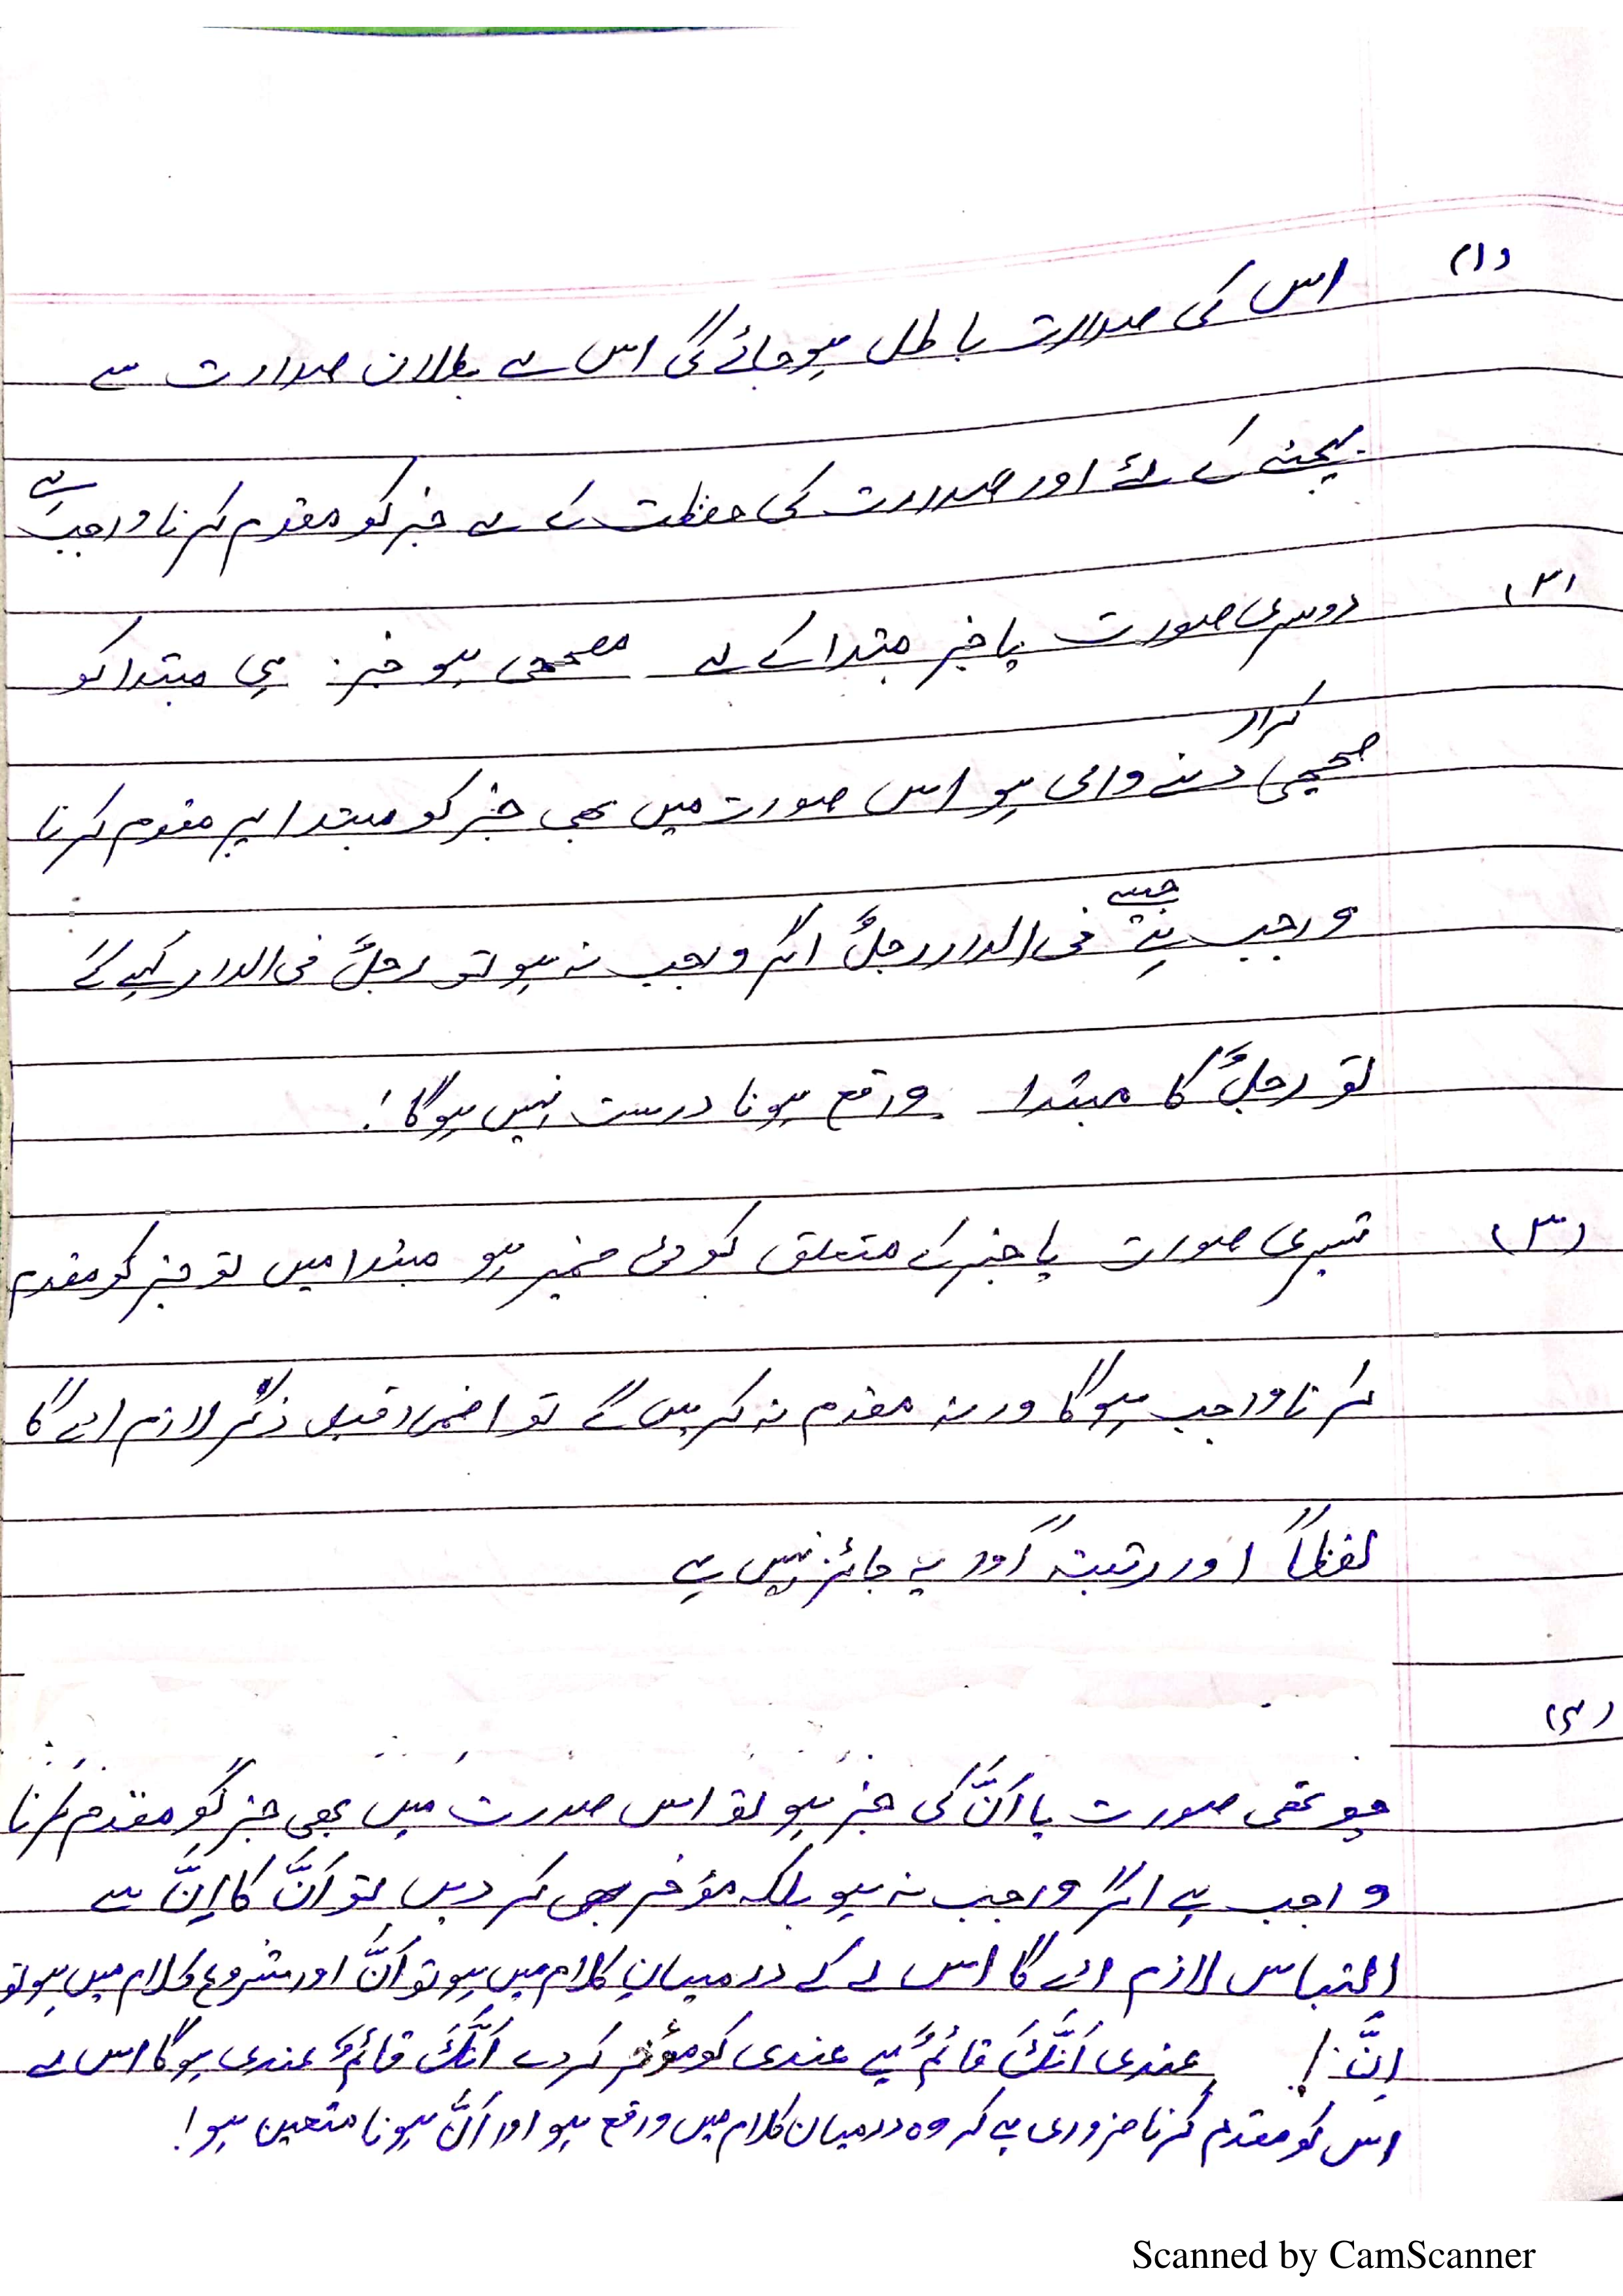 (۱) اس کی صدارت باطل ہوجائے گی اس لے بطلان صدارت سے
بچنے کے لئے اور صدارت کی حفظت کے لے خبر کو مقدم کرنا واجب ہے
(۲) دوسری صورت یا خبر مبتدا کے لے مصححی ہو خبر ہی مبتدا کو
صحیحی کرار دینے والی ہو اس صورت میں بھی خبر کو مبتدا پر مقدم کرنا
واجب ہے جیسے فی الدار رجلٌ اگر واجب نہ ہو تو رجلٌ فی الدار کہیے گے
تو رجلٌ کا مبتدا واقع ہونا درست نہیں ہوگا!
(۳) تیسری صورت یا خبر کے متعلق کوئی ضمیر ہو مبتدا میں تو خبر کو مقدم
کرنا واجب ہوگا ورنہ مقدم نہ کریں گے تو اضمار قبل ذکر لازم ائے گا
لفظاً اور رتبتہً اور یہ جائز نہیں ہے
(۴)
چوتھی صورت یا اَنَّ کی خبر ہو تو اس صورت میں بھی خبر کو مقدم کرنا
واجب ہے اگر واجب نہ ہو بلکہ مؤخر بھی کر دیں تو اَنَّ کا اِنَّ سے
التباس لازم ائے گا اس لے کے درمیان کلام میں ہو تو اَنَّ اور شروع کلام میں ہو تو
اِنَّ! عندی اَنَّکَ قائمٌ ہے عندی کو مؤخر کردے اَنَّکَ قائمٌ عندی ہوگا اس لے
اس کو مقدم کرنا ضروری ہے کہ وہ درمیان کلام میں واقع ہو اور اَنَّ ہونا متعین ہو!
Scanned by CamScanner